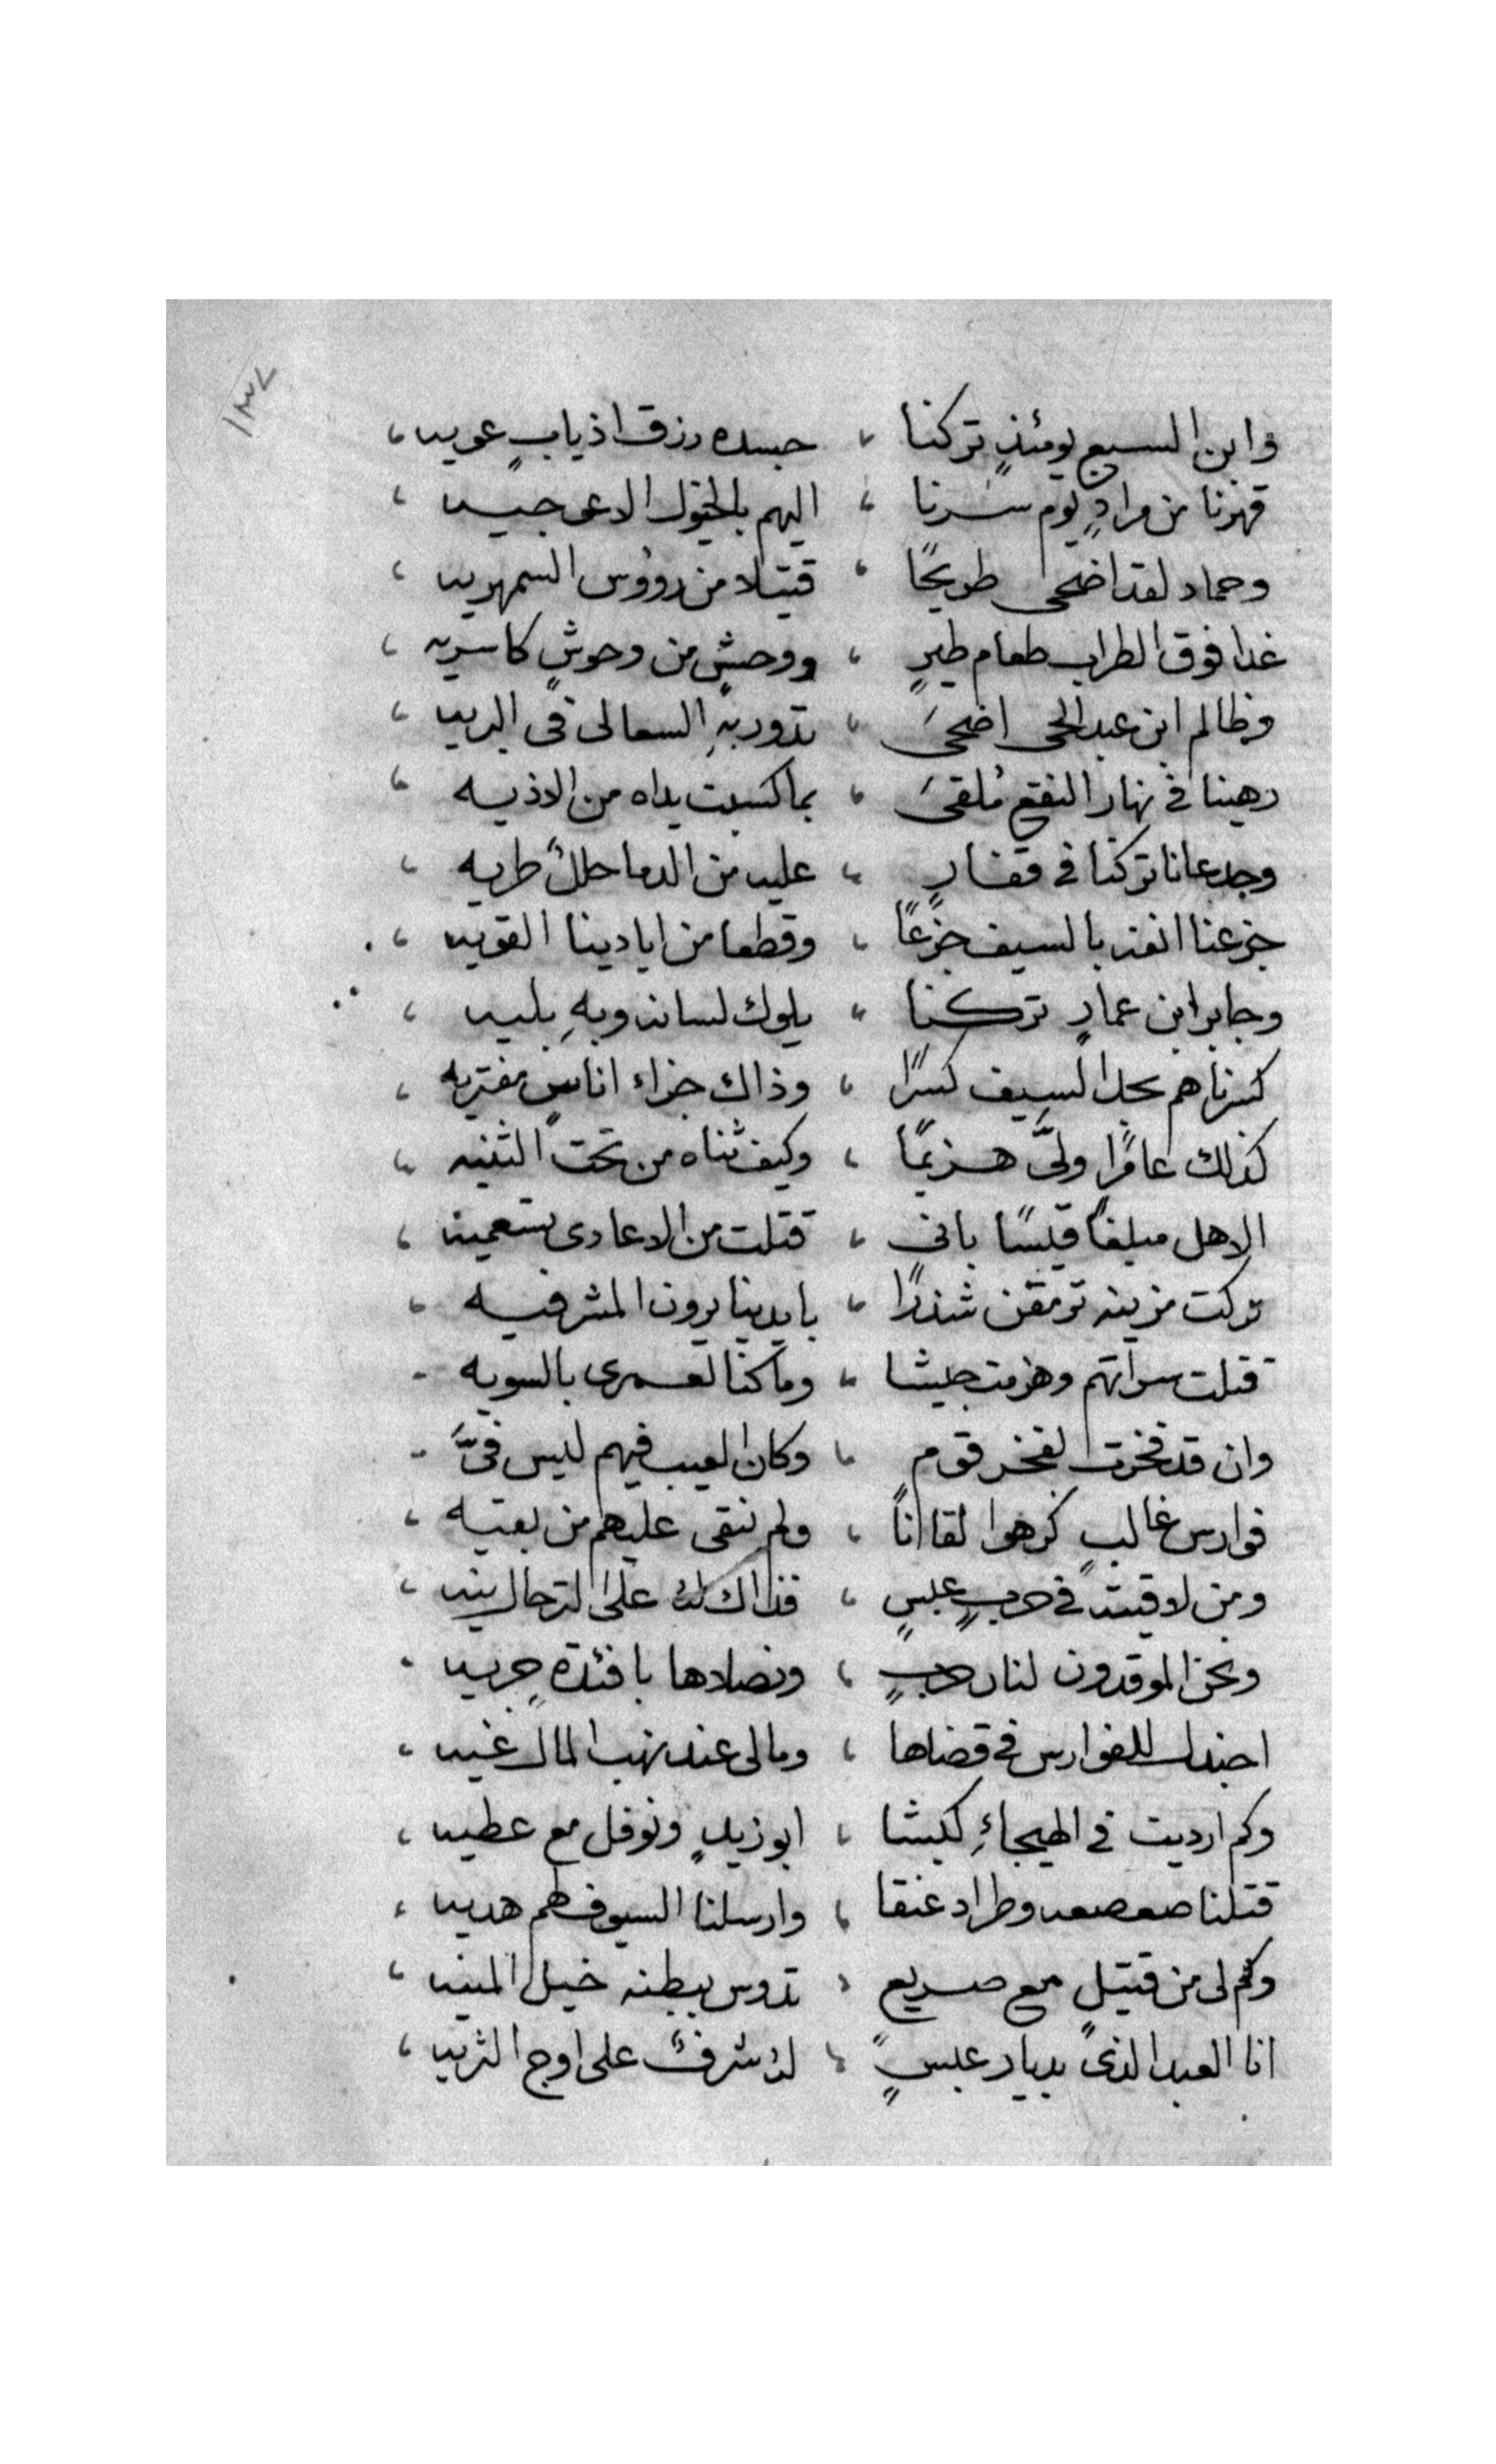 ١٣٧
وابن السبيع يومئذٍ تركنا ، جسده رزق اذيابٍ عويه ،
قهرنا من مرادٍ يوم سرنا ، اليهم بالخيول الاعوجيه ،
وحماد لقد اضحى طريحًا ، قتيلا من رووس السمهريه ،
غدا فوق الطراب طعام طيرٍ ، ووحشٍ من وحوشٍ كاسريه ،
وظالم ابن عبد الحى اضحىَ ، تدور بهِ السعالى فى البريه ،
رهينا فى نهار النقع مُلقىَ ، بما كسبت يداه من الاذيه ،
وجدعانا تركنا فى قفارٍ ، عليه من الدما حللٌ طريه ،
جزعنا انفه بالسيف جزعًا ، وقطعا من ايادينا القويه ،
وجابر ابن عمارٍ تركنا ، يلوك لسانه وبهِ بليه ،
كسرناهم بحد السيف كسرًا ، وذاك جزاء اناسٍ مفتريه ،
كذلك عامرًا ولىَّ هزيمًا ، وكيف ثناه من تحت الثنيه ،
الاهل مبلغًا قيسًا بانى ، قتلت من الاعادى بتسعمية ،
تركت مزينه ترمقن شذرًا ، بايدينا يرون المشرفيه ،
قتلت سراتهم وهزمت جيشا ، وما كنا لعمرى بالسويه -
وان قد فخرت لفخر قوم ، وكان العيب فيهم ليس فىَّ -
فوارس غالبٍ كرهوا لقاانًا ، ولم نبقى عليهم من بقيه ،
ومن لاقيته فى حربٍ عبسٍ ، فذاك له على الترحال نيه ،
ونحن الموقدون لنار حربٍ ، ونصلاها بافئدةٍ جريه ،
اجندل للفوارس فى قضاها ، ومالى عند نهب المال غيه ،
وكم ارديت فى الهيجاءِ كبشا ، ابو زيدٍ ونوفل مع عطيه ،
قتلنا صعصعه وطراد عنقا ، وارسلنا السيوف لهم هديه ،
وكم لى من قتيلٍ مع صريع ، تدوس ببطنه خيل المنيه ،
انا العبد الذى بديار عبسٍ ، له شرفٌ على اوج الثريه ،